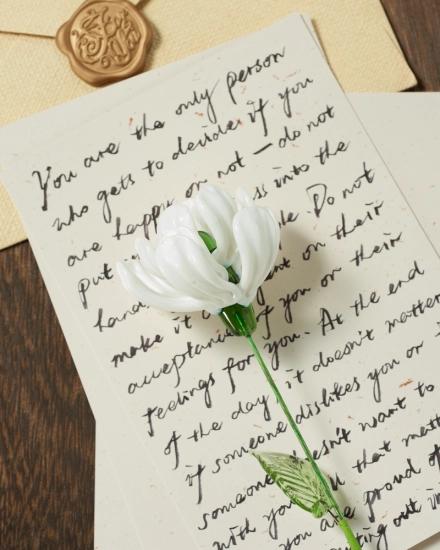 You are the only person
who gets to decide if you
are happy or not — do not
put ss into the
hand le. Do not
make it nt on their
acceptan f you or their
feelings for you. At the end
of the day it doesn't matter
if someone dislikes you or
someone esn't want to
with you that matt
you are proud of
ting out in